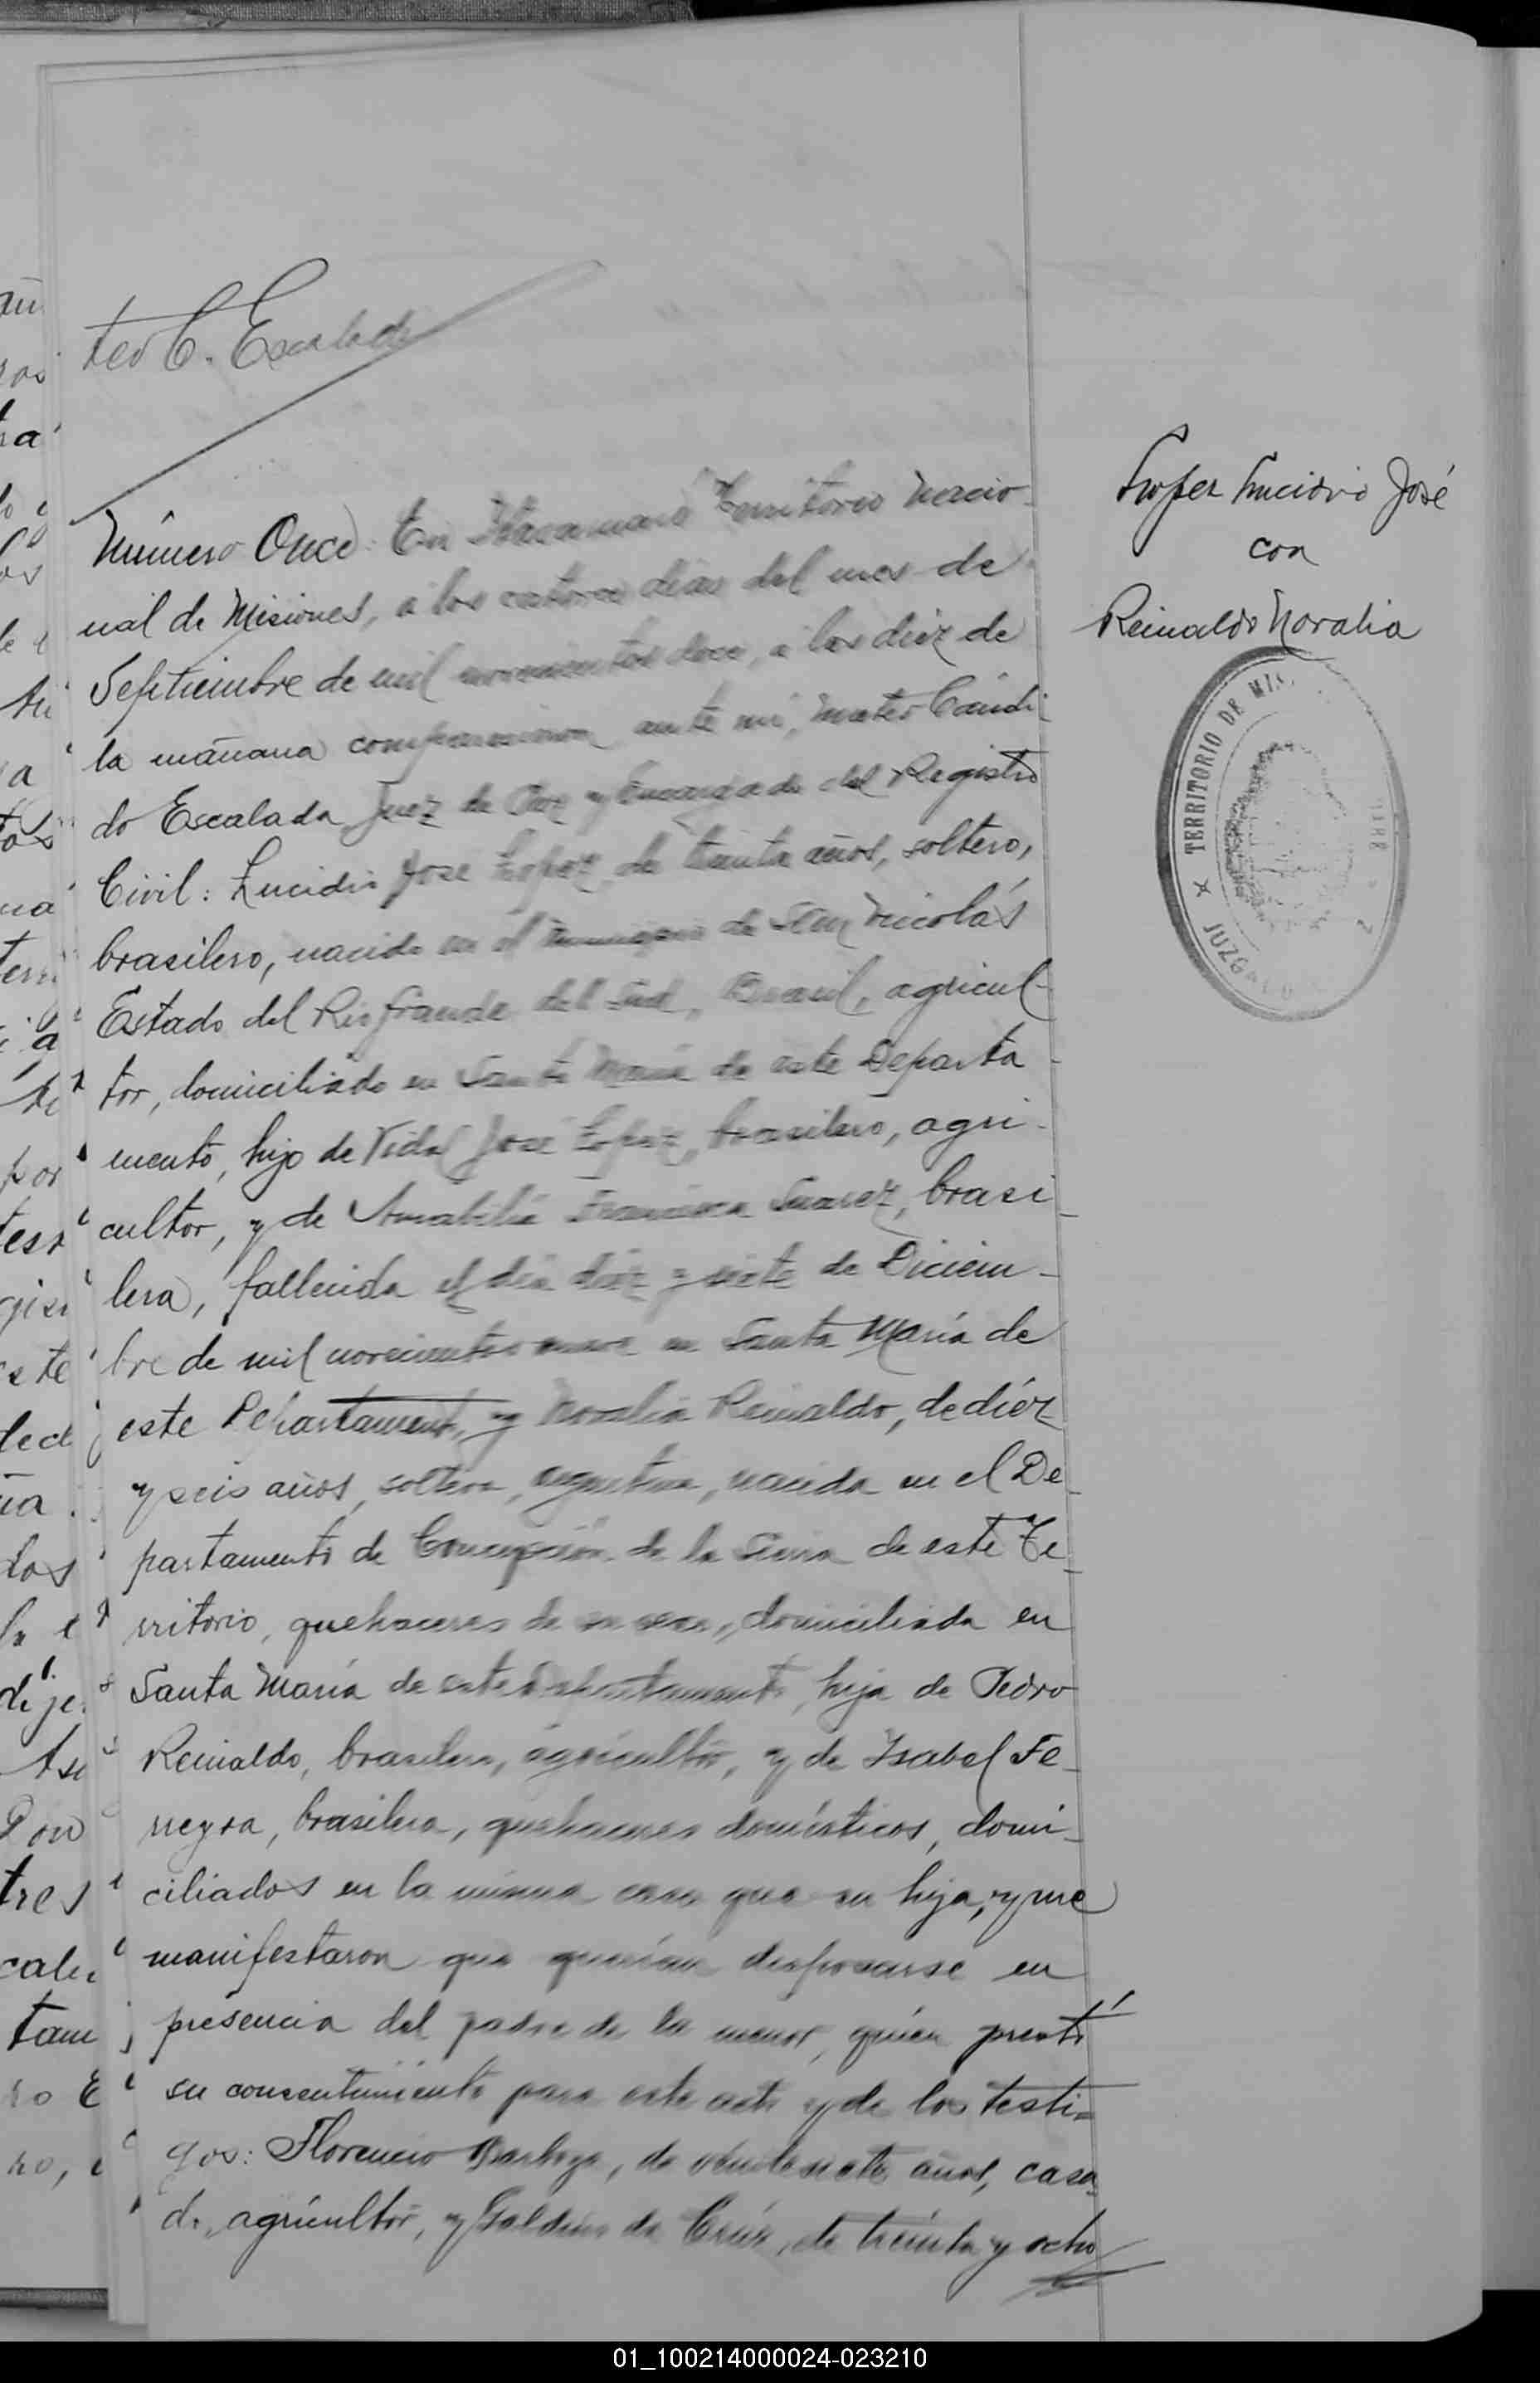 teo C. Escalada
Número Once: En Itacaruaré Territorio Nacio-
nal de Misiones, á los catorce dias del mes de
Septiembre de mil novecientos doce, a las diéz de
la mañana comparecieron ante mi, Mateo Cándi-
do Escalada Juez de Paz y Encargado del Registro
Civil: Lucidio José Lopez, de treinta años, soltero,
brasilero, nacido en el Municipio de San Nicolás
Estado del Rio Grande del Sud, Brasil, agricul-
tor, domiciliado en Santa María de este Departa-
mento, hijo de Vidal José Lopez, brasilero, agri-
cultor, y de Amabilia Francisca Suarez, brasi-
lera, fallecida el dia diéz y siete de Diciem-
bre de mil novecientos nueve en Santa María de
este Departamento, y Noralia Reinaldo, de diéz
y seis años, soltera, argentina, nacida en el De-
partamento de Concepción de la Sierra de este Te-
rritorio, quehaceres de su sexo, domiciliada en
Santa María de este Departamento, hija de Pedro
Reinaldo, brasilero, agricultor, y de Isabel Fe-
neyra, brasilera, quehaceres domésticos, domi-
ciliados en la misma casa que su hija, y me
manifestaron que querían desposarse en
presencia del padre de la menor, quién prestó
su consentimiento para este acto y de los testi-
gos: Florencio Barboza, de veintesiete años, casa-
do, agricultor, y Galdino da Crúz, de treinta y ocho
Lopez Lucidio José
con
Reinaldo Noralia
TERRITORIO DE MIS
JUZG